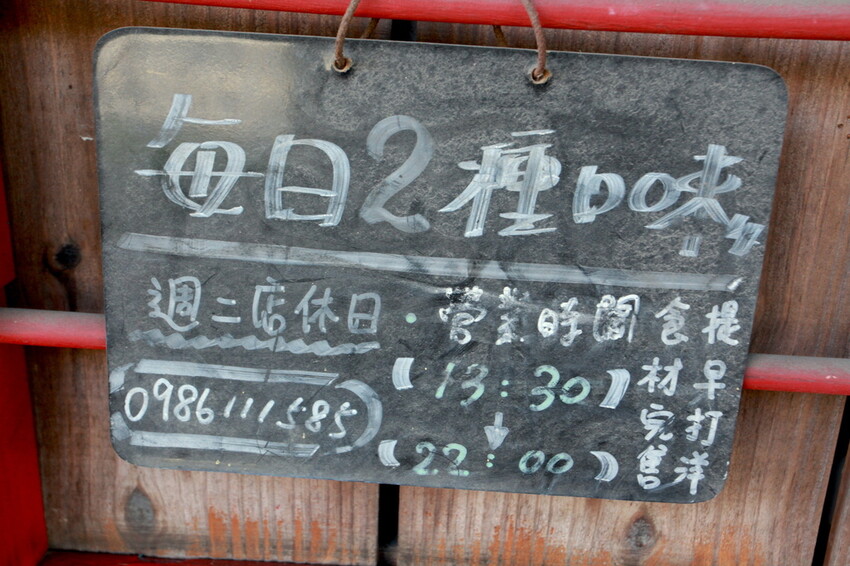 每日2種口味
週二店休日・營業時間
【13:30】
↓
【22:00】
0986111585
食材完售
提早打洋